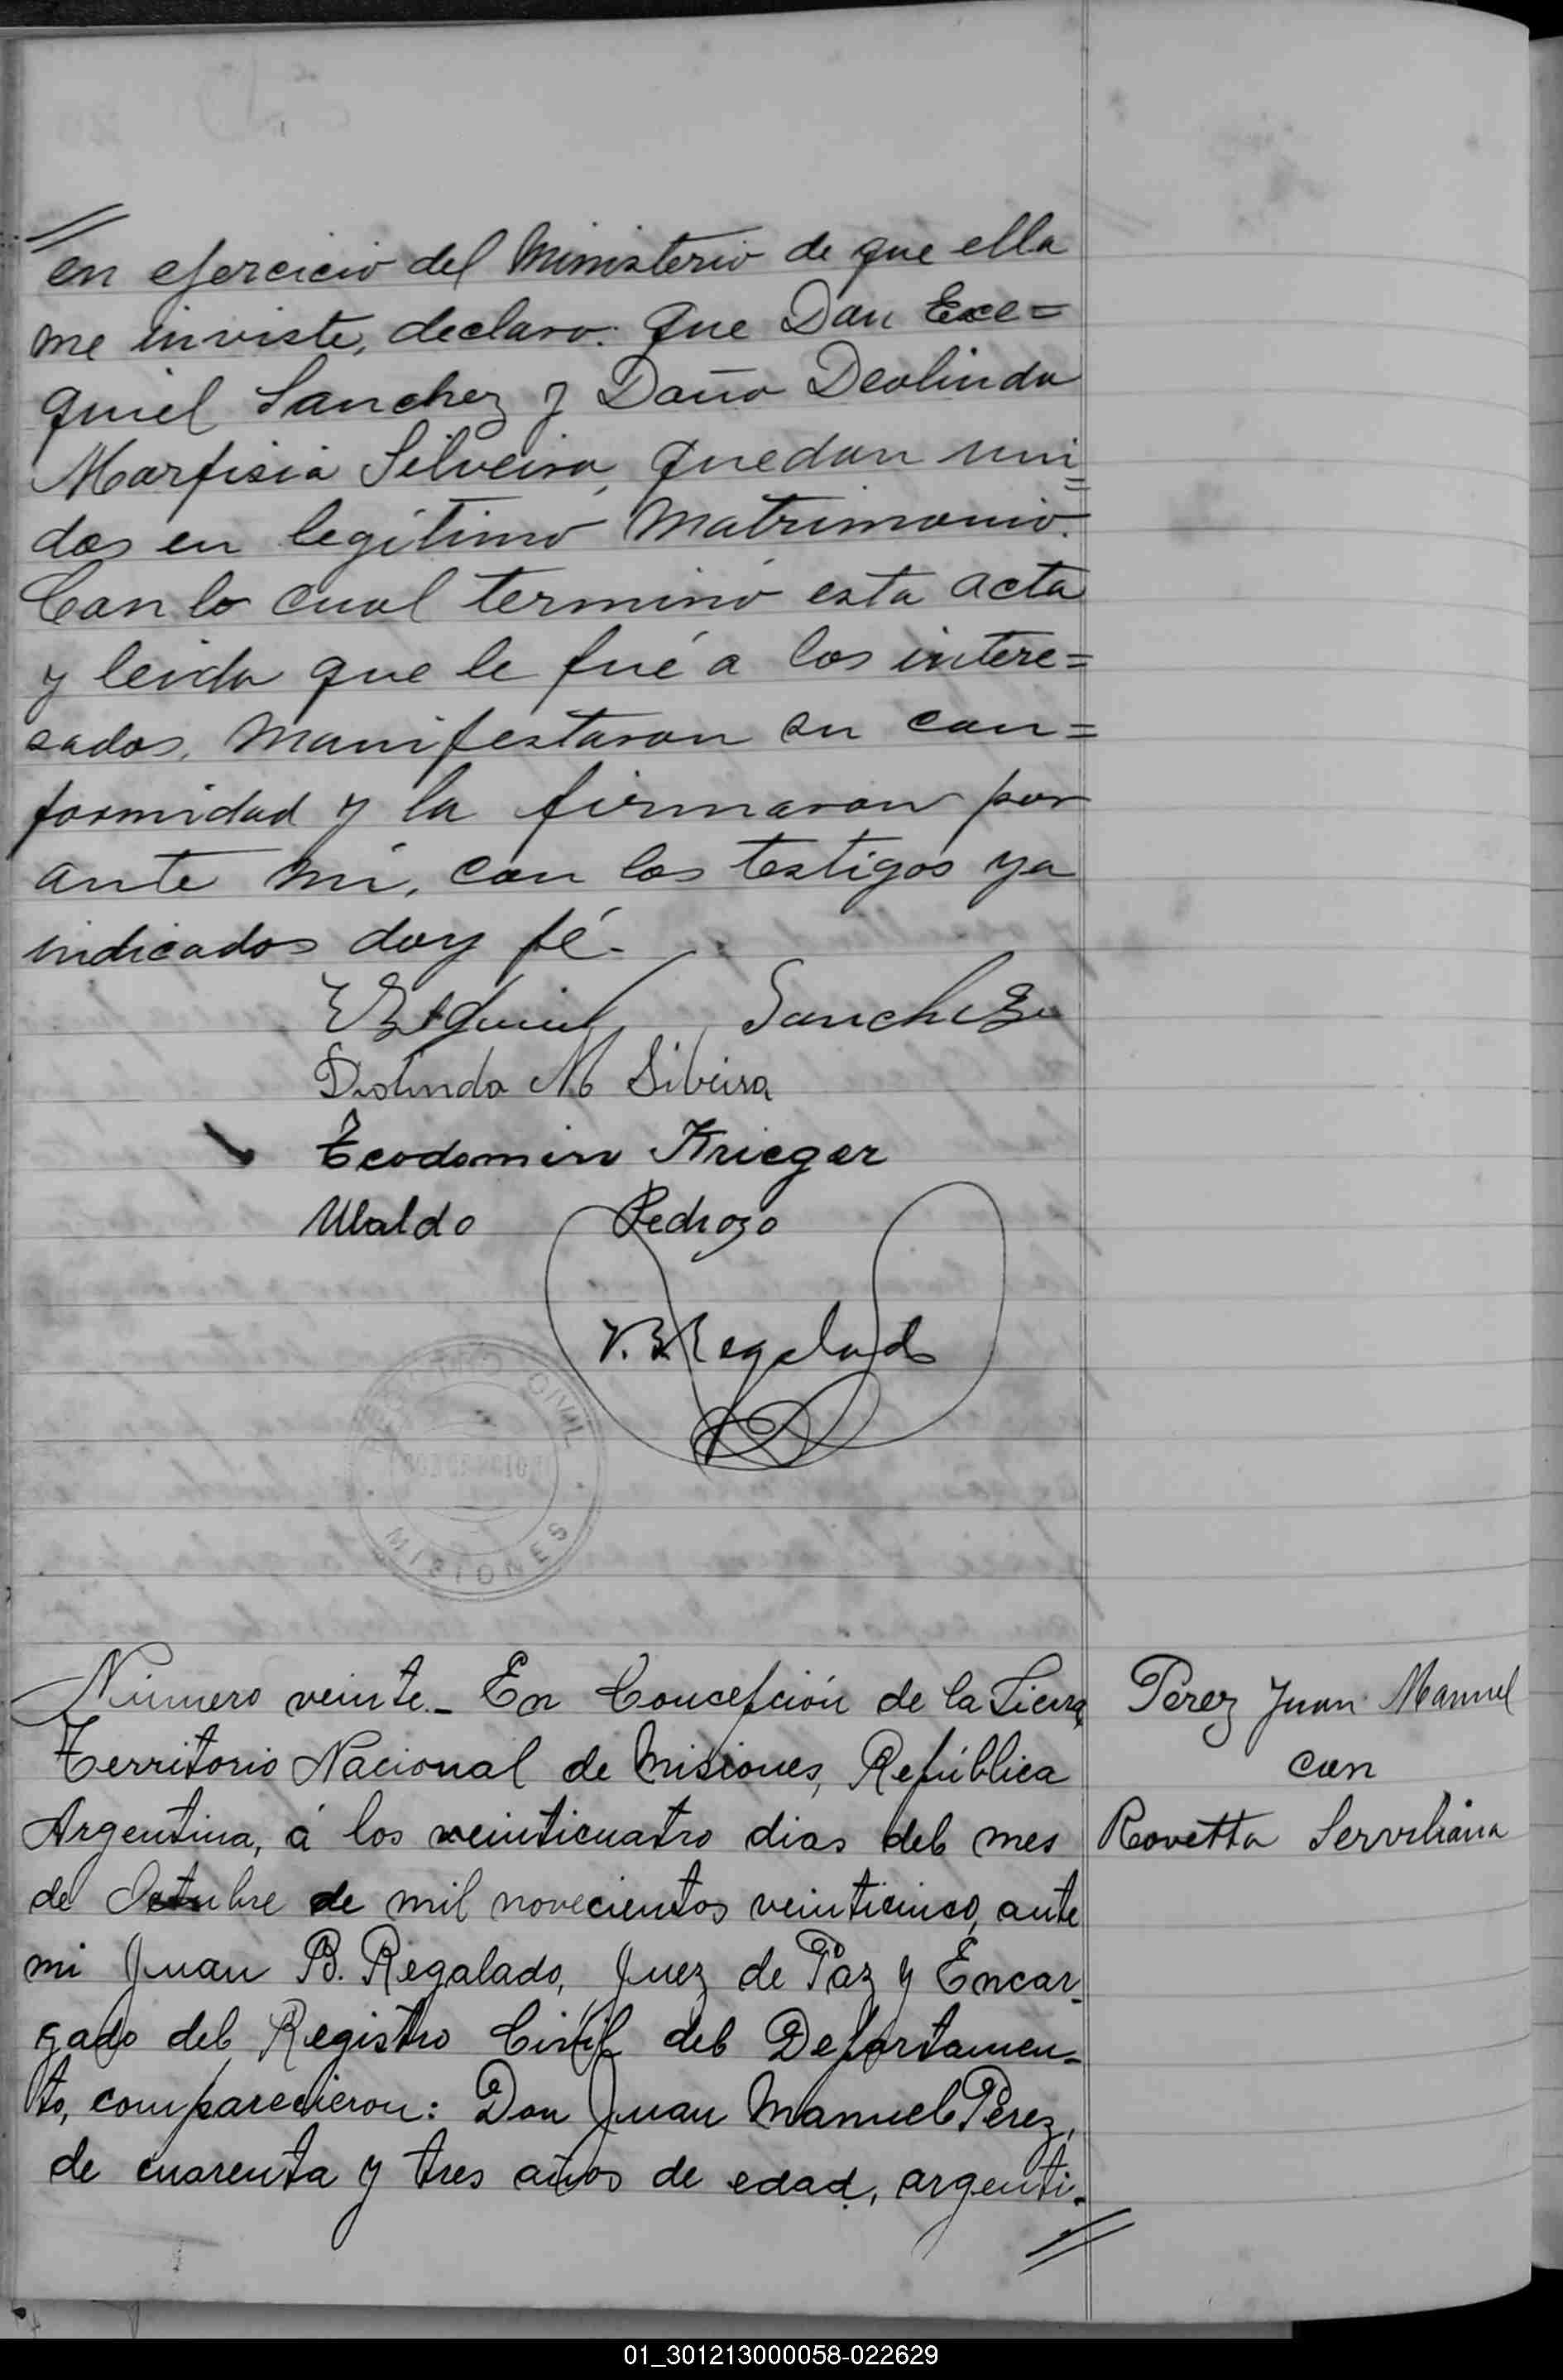 en ejercicio del Ministerio de que ella
me inviste, declaro: Que Don Exe=
quiel Sanchez y Doña Deolinda
Marfisia Silveira, quedan uni=
dos en legítimo Matrimonio.
Con lo cual terminó esta acta
y leida que le fué a los intere=
sados, manifestaron su con=
formidad y la firmaron por
ante mí, con los testigos ya
indicados doy fé.-
Sanchez
Deolinda M Silveira
Teodomiro Krieger
Ubaldo Pedrozo
J. B. Regalado
REGISTRO CIVIL
MISIONES
Número veinte.- En Concepción de la Sierra,
Territorio Nacional de Misiones, República
Argentina, á los veinticuatro dias del mes
de Octubre de mil novecientos veinticinco, ante
mi Juan B. Regalado, Juez de Paz y Encar-
gado del Registro Civil del Departamen-
to, comparecieron: Don Juan Manuel Perez,
de cuarenta y tres años de edad, argenti-
Perez Juan Manuel
con
Rovetta Serviliana
01_301213000058-022629